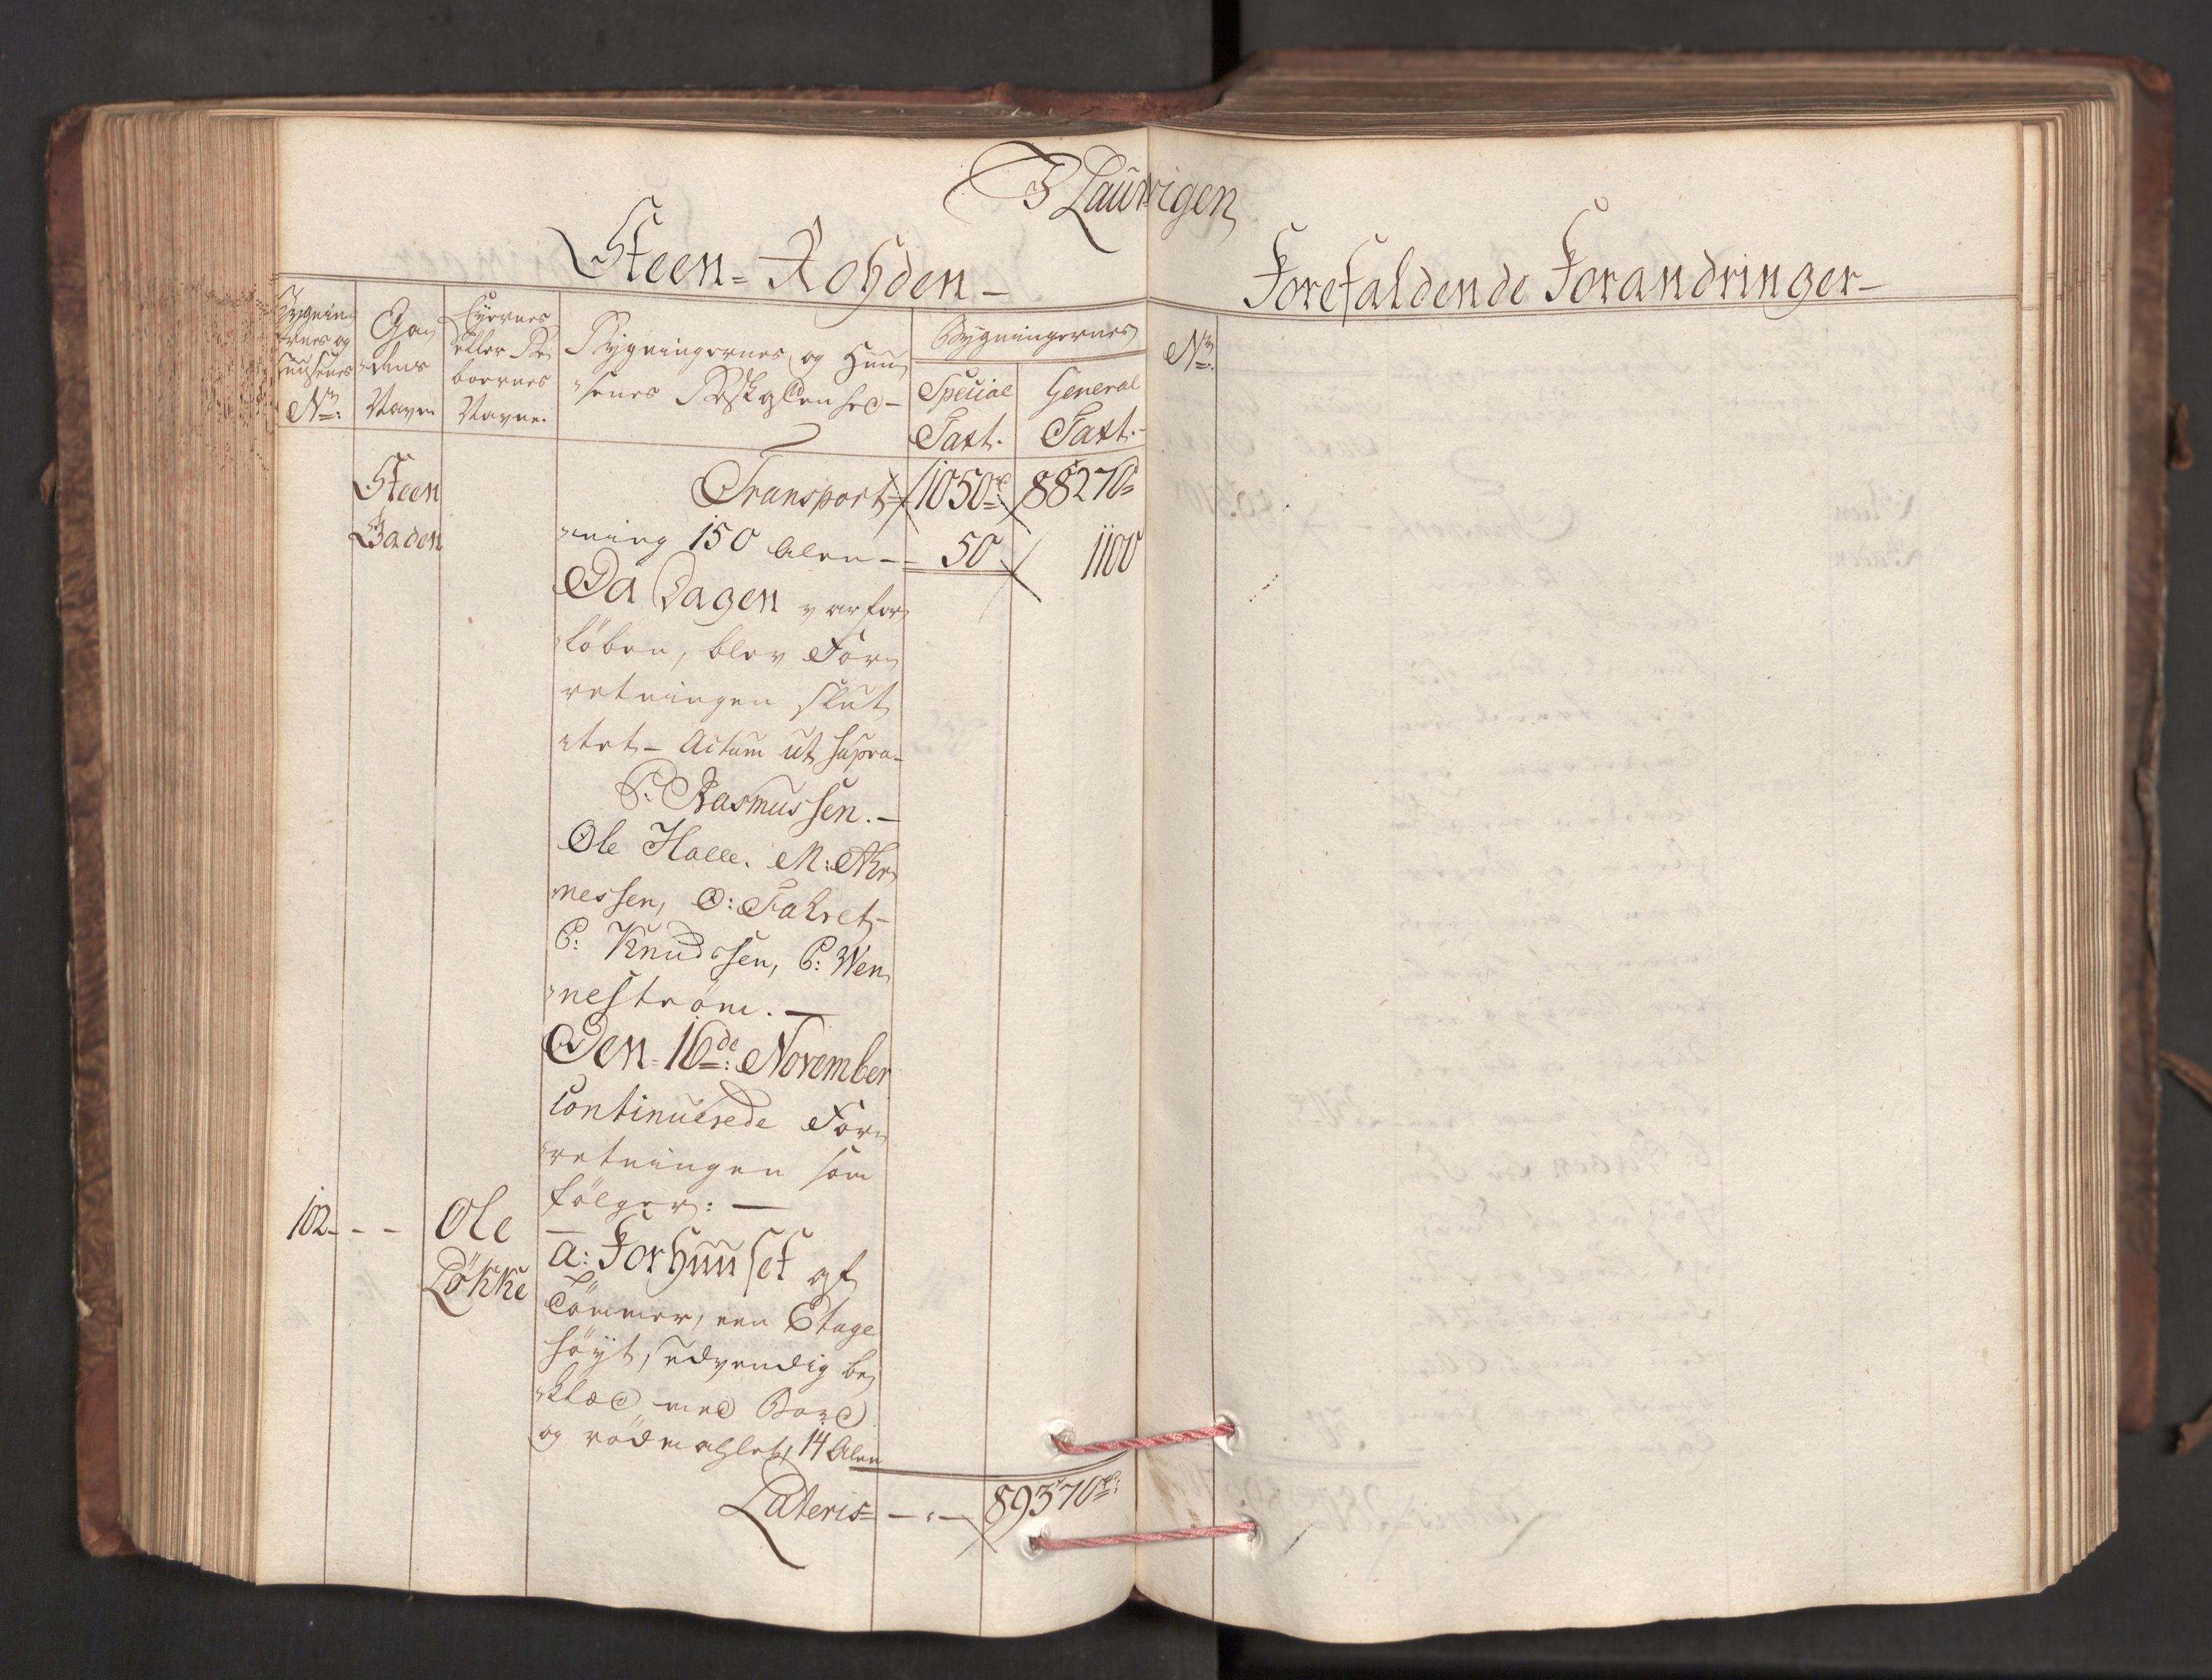 I Laurvigen
Steen-Rohden-
Forefaldende Forandringer-
Bygning
ernes og
Huusenes
No:
Ga
dens
Navn
Eyernes
eller Be
boernes
Navne.
Bygningernes og Huu
senes Beskaffenhed-
Bygningernes
Special
Taxt.
General
Taxt.-
No.
Steen
Gaden
Transport 1050 88270
ning 150 Alen - 50 1100
Da Dagen var for
löben, blev For
retningen slut
tet - Actum ut supra-
P: Rasmussen.-
Ole Halle. M:
nessen, O: Fahret-
P: Knudssen, P: Wen
neström.-
Den 16de: November
Continuerede For
retningen som
fölger:-
102 - - Ole
Lökke
a: Forhuuset af
Tömmer, een Etage
höyt, udvendig be
klæd med Bord
og rödmahlet, 14 Alen
Lateris - - 89370